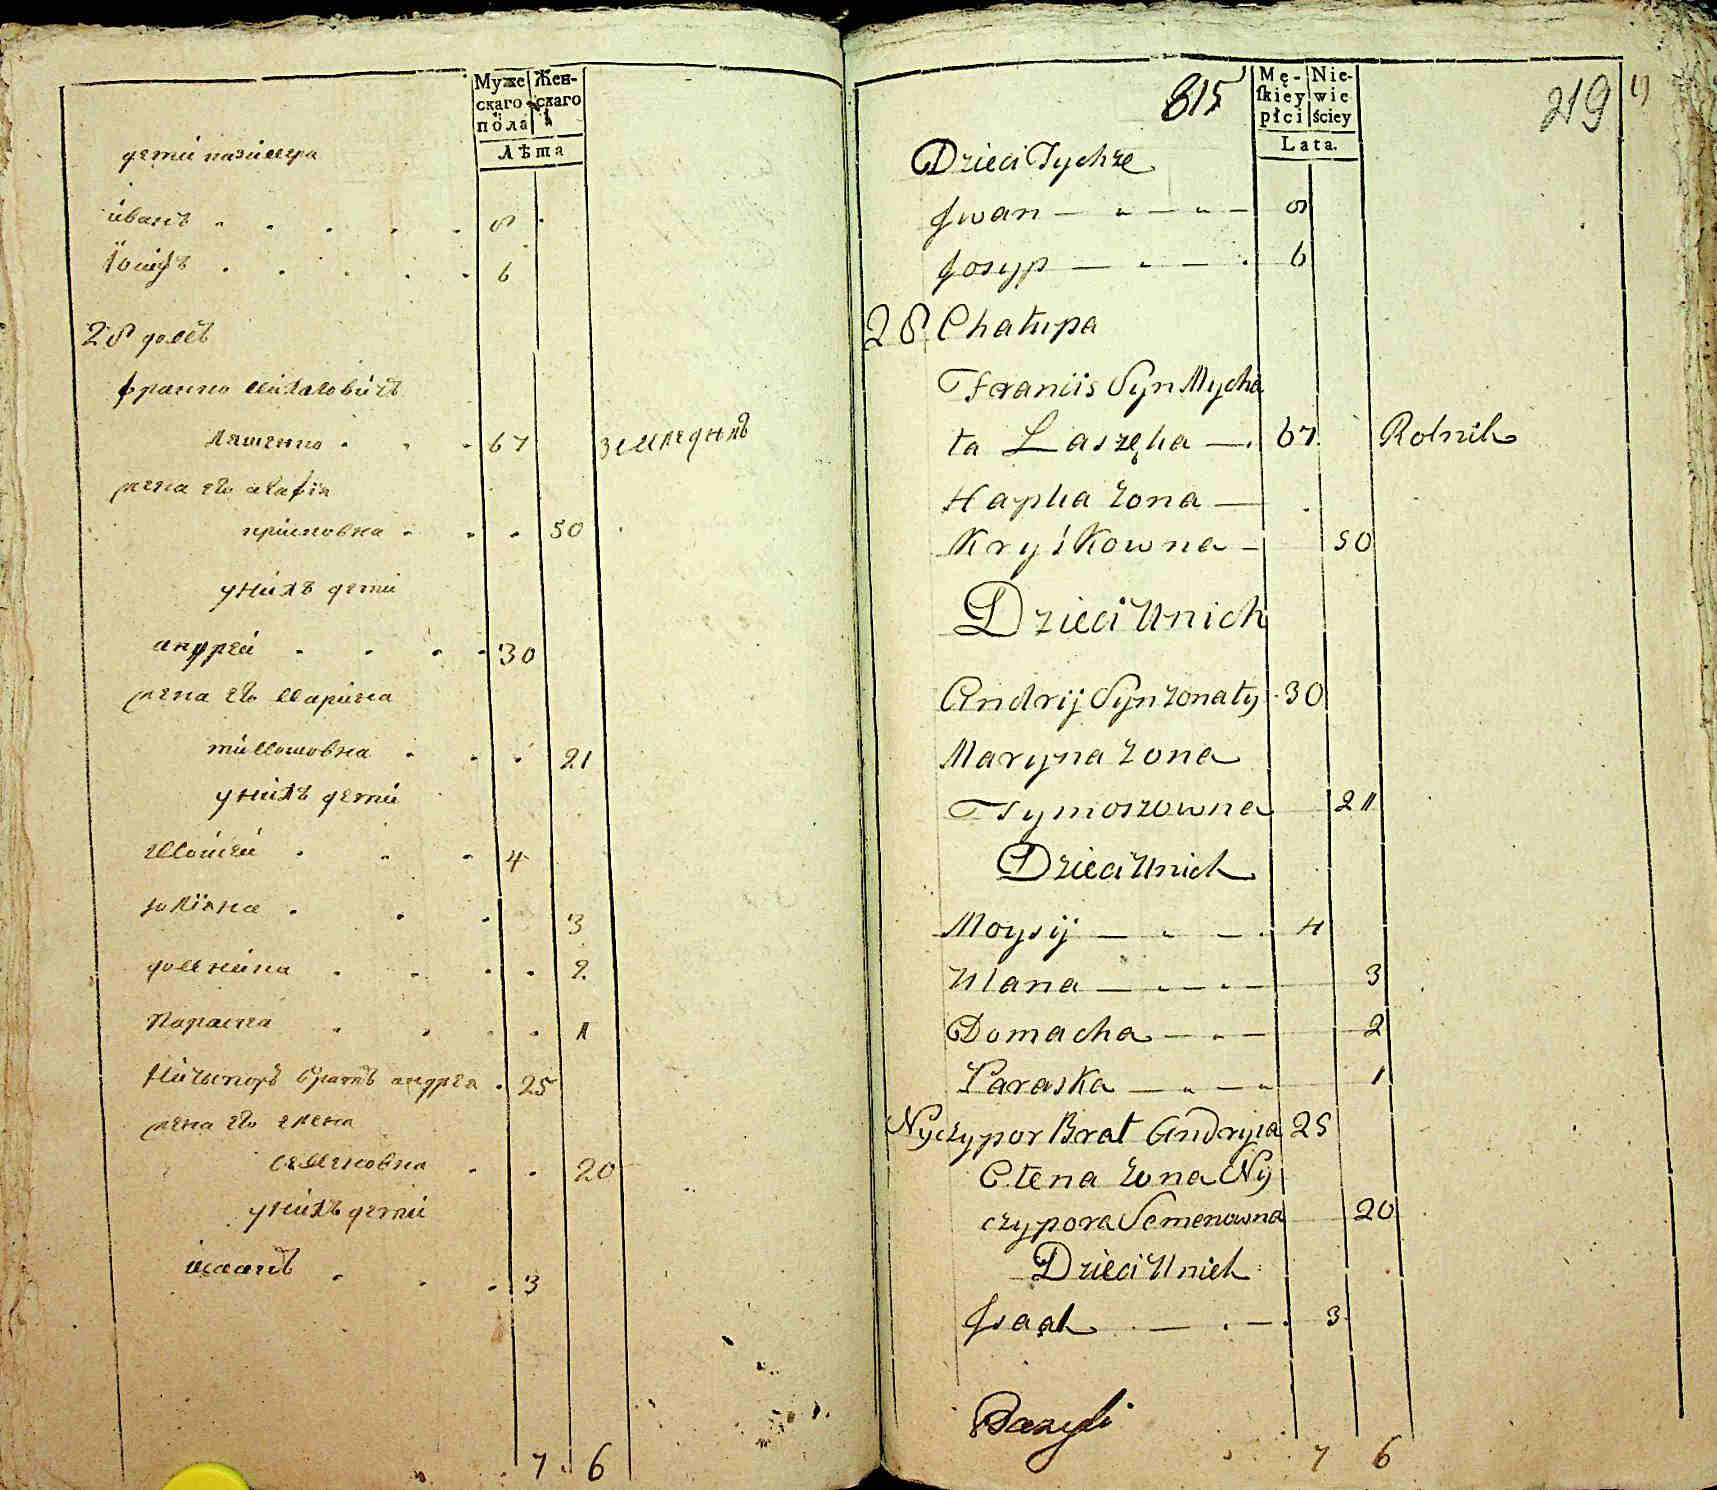 Муже Жен-
скаго скаго
пола
Лѣта
дети казимера
иванъ . . . . . 8
Юсифъ . . . . . 6
28 домъ
франко Михаловичъ
ляшенко . . . 67 земледелъ
жена его агафія
криековна . . . 50
у нихъ дети
андреи . . . . 30
жена его Марина
тимошовна . . . 21
у нихъ дети
Моисеи . . . 4
юлїяна . . . 3
домникиа . . . . 2
Параска . . . . 1
Ничыпоръ братъ андрея . 25
жена его елена
семеновна . . 20
у нихъ дети
исаакъ . . . 3
7 . 6
815 219
Mę- Nie-
ſkiey wie
płci ściey
Lata.
Dzieci Tychże
Jwan — „ — „ — 8
Josyp — „ — . 6
28 Chałupa
Franciś Syn Mycha
ła Laszęka — . 67. Rolnik
Hapka żona —
Kryśkowna — 50
Dzieci Unich
Andrij Syn żonaty . 30
Maryna żona
Tymoszowna 21
Dzieci Unich
Moysij — „ — . 4
Ulana — „ — „ — 3
Domacha — „ — 2
Paraska — „ — „ 1
Nyczypor Brat Andryja 25
Ołena żona Ny
czypora Semenowna 20
Dzieci Unich
Jsaak — . — . 3
Bazyli
7 6